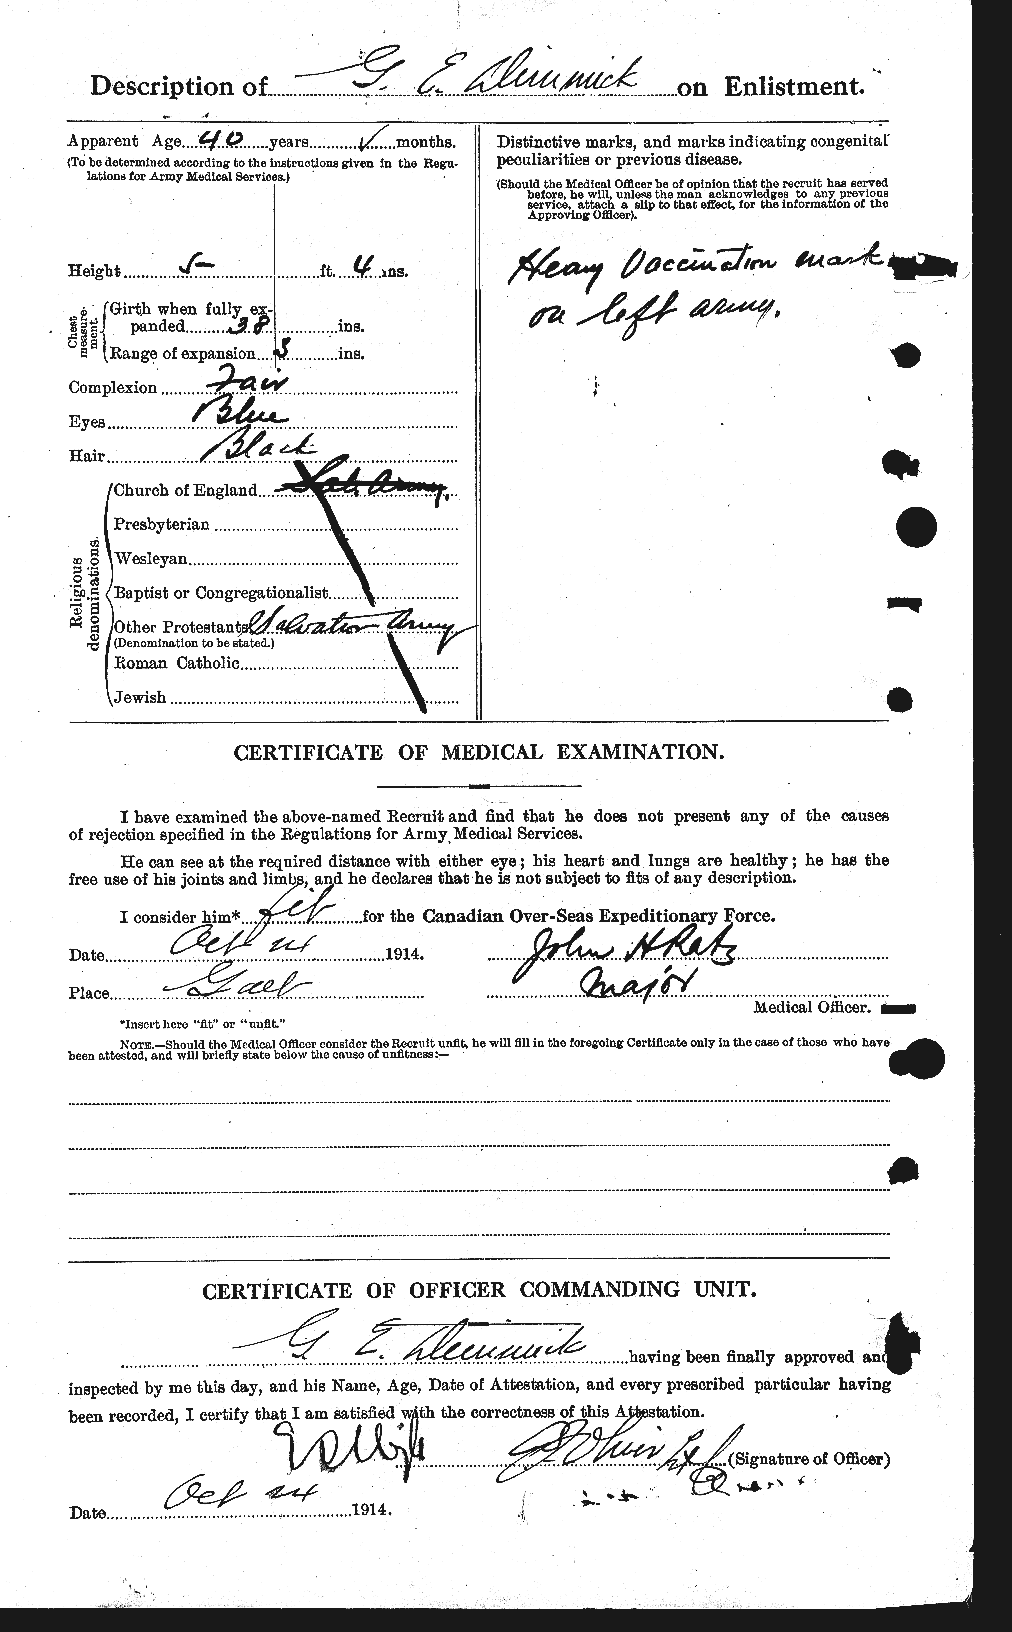 Description of G. E. Dimmick on Enlistment.
Apparent Age 40 years months.
(To be determined according to the instructions given in the Regu-
lations for Army Medical Services.)
Height 5 ft. 4 ins.
Chest
measure-
ment.
Girth when fully ex-
panded 38 ins.
Range of expansion 3 ins.
Complexion Fair
Eyes Blue
Hair Black
Religious
denominations.
Church of England Sal. Army.
Presbyterian
Wesleyan
Baptist or Congregationalist
Other Protestants Salvation Army
(Denomination to be stated.)
Roman Catholic
Jewish
Distinctive marks, and marks indicating congenital
peculiarities or previous disease.
(Should the Medical Officer be of opinion that the recruit has served
before, he will, unless the man acknowledges to any previous
service, attach a slip to that effect, for the information of the
Approving Officer).
Heavy Vaccination mark
on left army.
CERTIFICATE OF MEDICAL EXAMINATION.
I have examined the above-named Recruit and find that he does not present any of the causes
of rejection specified in the Regulations for Army Medical Services.
He can see at the required distance with either eye; his heart and lungs are healthy; he has the
free use of his joints and limbs, and he declares that he is not subject to fits of any description.
I consider him* fit for the Canadian Over-Seas Expeditionary Force.
Date Oct 24 1914. John H Ratz
Place Galt Major
Medical Officer.
*Insert here "fit" or "unfit."
NOTE.—Should the Medical Officer consider the Recruit unfit, he will fill in the foregoing Certificate only in the case of those who have
been attested, and will briefly state below the cause of unfitness:—
CERTIFICATE OF OFFICER COMMANDING UNIT.
G E. Dimmick having been finally approved and
inspected by me this day, and his Name, Age, Date of Attestation, and every prescribed particular having
been recorded, I certify that I am satisfied with the correctness of this Attestation.
(Signature of Officer)
Date Oct 24 1914.